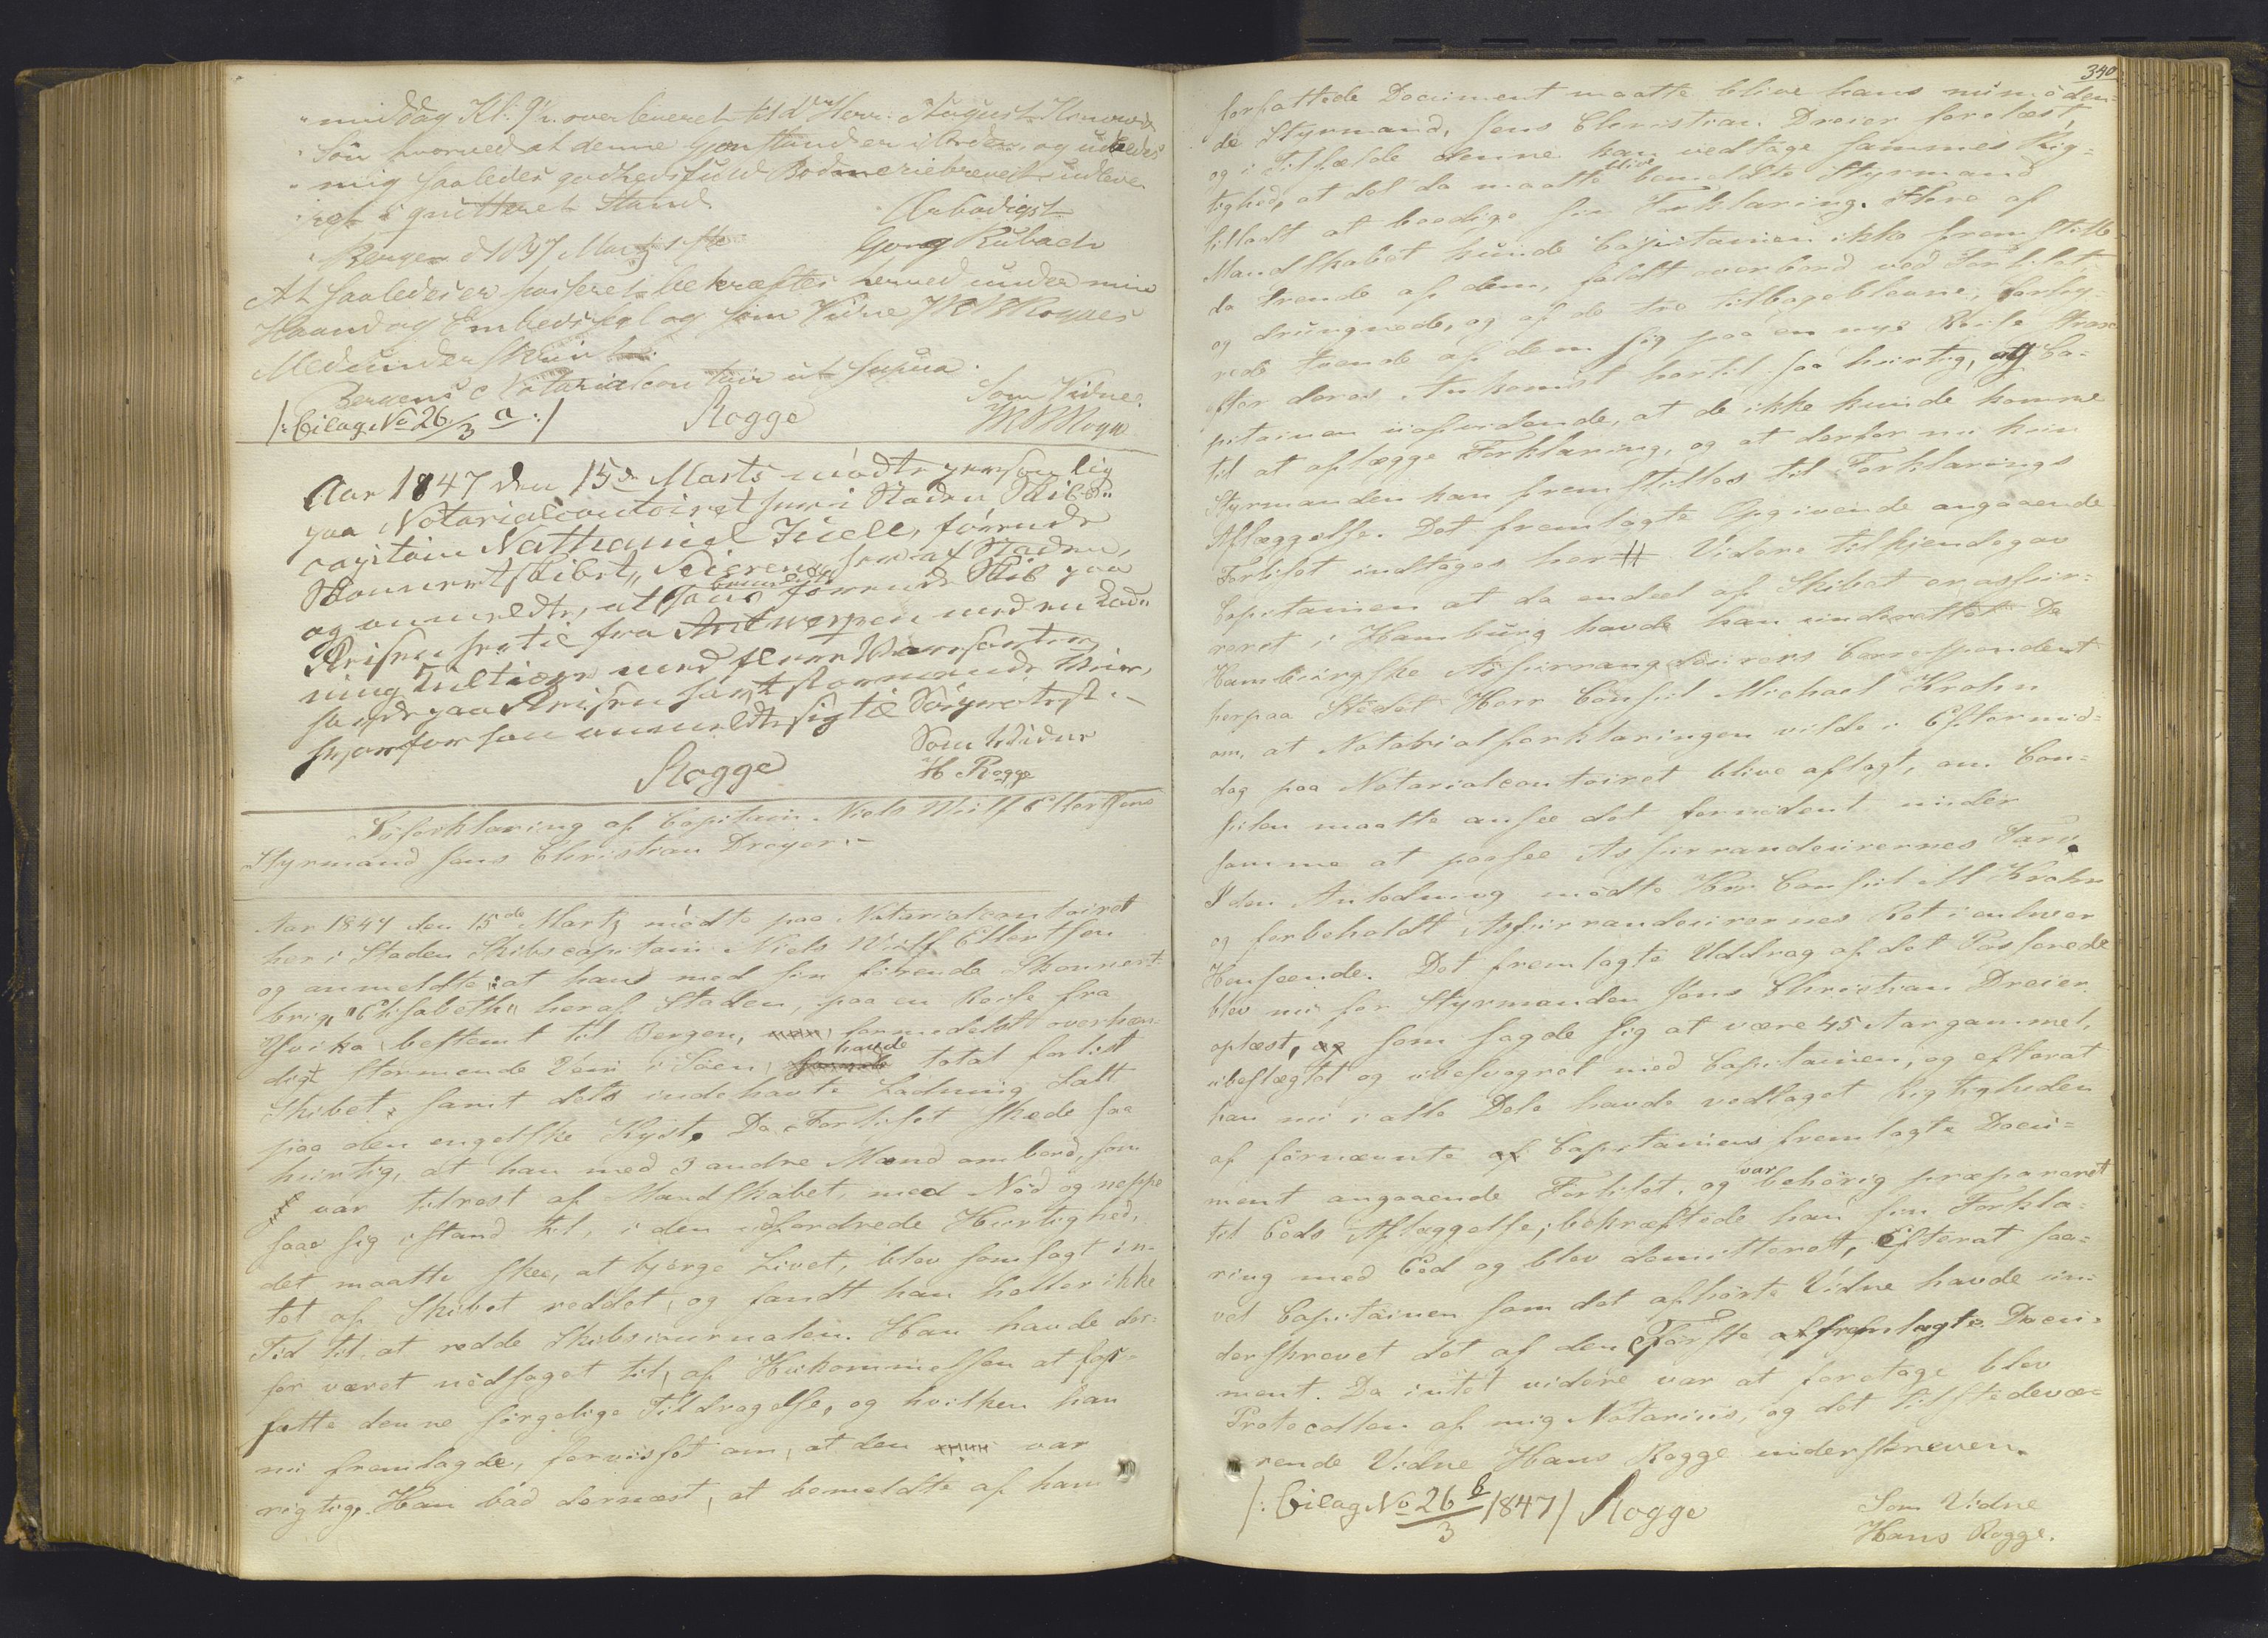 middag Kl: 9½ overleveret til d Herr: August Konow &
Søn hvorved at denne Gjenstand er i Orden, og udbedes
mig saaledes godhedsfuld Bodmeriebrevet udleve
ret i quitteret Stand
Bergen d 13/3 47
Ærbødigst
Georg Kubach
At saaledes er passeret bekræftes herved under min
Haand og Embedssegl og som Vidne Rogges
Medunderskrivt.
Bergens Notarialcontoir ut supra.
/: Bilag No 26/3 a :/
Rogge
Som Vidne.
Aar 1847 den 15de Marts mødte personlig
paa Notarialcontoiret her i Staden Skibs-
capitain Nathaniel Juell, førende
Skonnertskibet „Seieren“ her af Staden,
og anmeldte, at hans bemeldte førende Skib paa
Reisen hertil fra Antwerpen med en Lad-
ning Multiegn med flere Varesorter,
havde paa Reisen havt stormende Veir,
hvorfor han anmeldte sig til Søeprotest.-
Rogge
Som Vidne
H Rogge
Søforklaring af Capitain Niels Wulf Ellertsens
Styrmand Jens Christian Dreyer.-
Aar 1847 den 15de Marts mødte paa Notarialcontoiret
her i Staden Skibscapitain Niels Wulf Ellertsen
og anmeldte: at hans med sin førende Skonnert-
brig, "Elisabeth" heraf Staden, paa en Reise fra
Yvika bestemt til Bergen, formedelst overhæn-
digt stormende Veir i Søen, havde total forlist
Skibet, samt dets indehavte Ladning Salt
paa den engelske Kyst. Da Forliset skede saa
hurtig, at han med 3 andre Mænd ombord, som
var tilrest af Mandskabet, med Nød og neppe
saae sig istand til, i den udfordrede Hurtighed,
det maatte skee, at bjerge Livet, blev som sagt in-
tet af Skibet reddet, og fandt han heller ikke
Tid til at redde Skibsjournalen. Han havde der-
for været nødsaget til, af Hukommelsen at for-
fatte denne sørgelige Tildragelse, og hvilken han
nu fremlagde, forvisset om, at den var
rigtig. Han bad dernæst, at bemeldte af ham
340
forfattede Document maatte blive hans nu møden-
de Styrmand, Jens Christian Dreier forelæst,
og i Tilfælde denne kan vedtage sammes Rig-
tighed, at det da maatte blive bemeldte Styrmand
tilladt at beedige sin Forklaring. Flere af
Mandskabet kunde Capitainen ikke fremstille
da trende af dem, faldt overbord ved Forliset
og druknede, og af de tre tilbageblevne, forhy-
rede tvende af dem sig paa en nye Reise strax
efter deres Ankomst hertil saa hurtig, at Ca-
pitainen uafvidende, at de ikke kunde komme
til at aflægge Forklaring, og at derfor nu kun
Styrmanden kan fremstilles til Forklarings
Aflæggelse. Det fremlagte Opgivende angaaende
Forliset indtages her # Videre tilkjendegav
Capitainen at da endeel af Skibet er assur-
reret i Hamburg havde han underrettet De
Hamburgske Assurrandeurers Correspondent
herpaa Stedet Herr Consul Michael Krohn
om, at Notarialforklaringen vilde i Eftermid-
dag paa Notarialcontoiret blive aflagt, om Con-
sulen maatte ansee det fornødent under
samme at paasee Assurrandeurernes Tarv.
I den Anledning mødte Herr Consul M Krohn
og forbeholdt Assurrandeurernes Ret i enhver
Henseende. Det fremlagte Uddrag af det Passerede
blev nu for Styrmanden Jens Christian Dreier
oplæst, som sagde sig at være 45 Aar gammel,
ubeslægtet og ubesvogret med Capitainen, og efterat
han nu i alle Dele havde vedtaget Rigtigheden
af førnævnte af Capitainens fremlagte Docu-
ment angaaende Forliset, og var behørig præpareret
til Eeds Aflæggelse, bekræftede han sin Forkla-
ring med Eed og blev demitteret, efterat saa-
vel Capitainen som det afhørte Vidne havde un-
derskrevet det af den Første fremlagte Docu-
ment. Da intet videre var at foretage blev
Protocollen af mig Notarius, og det tilstedevæ-
rende Vidne Hans Rogge underskreven.
/: Bilag No 26 b/3 1847/ Rogge
Som Vidne
Hans Rogge.